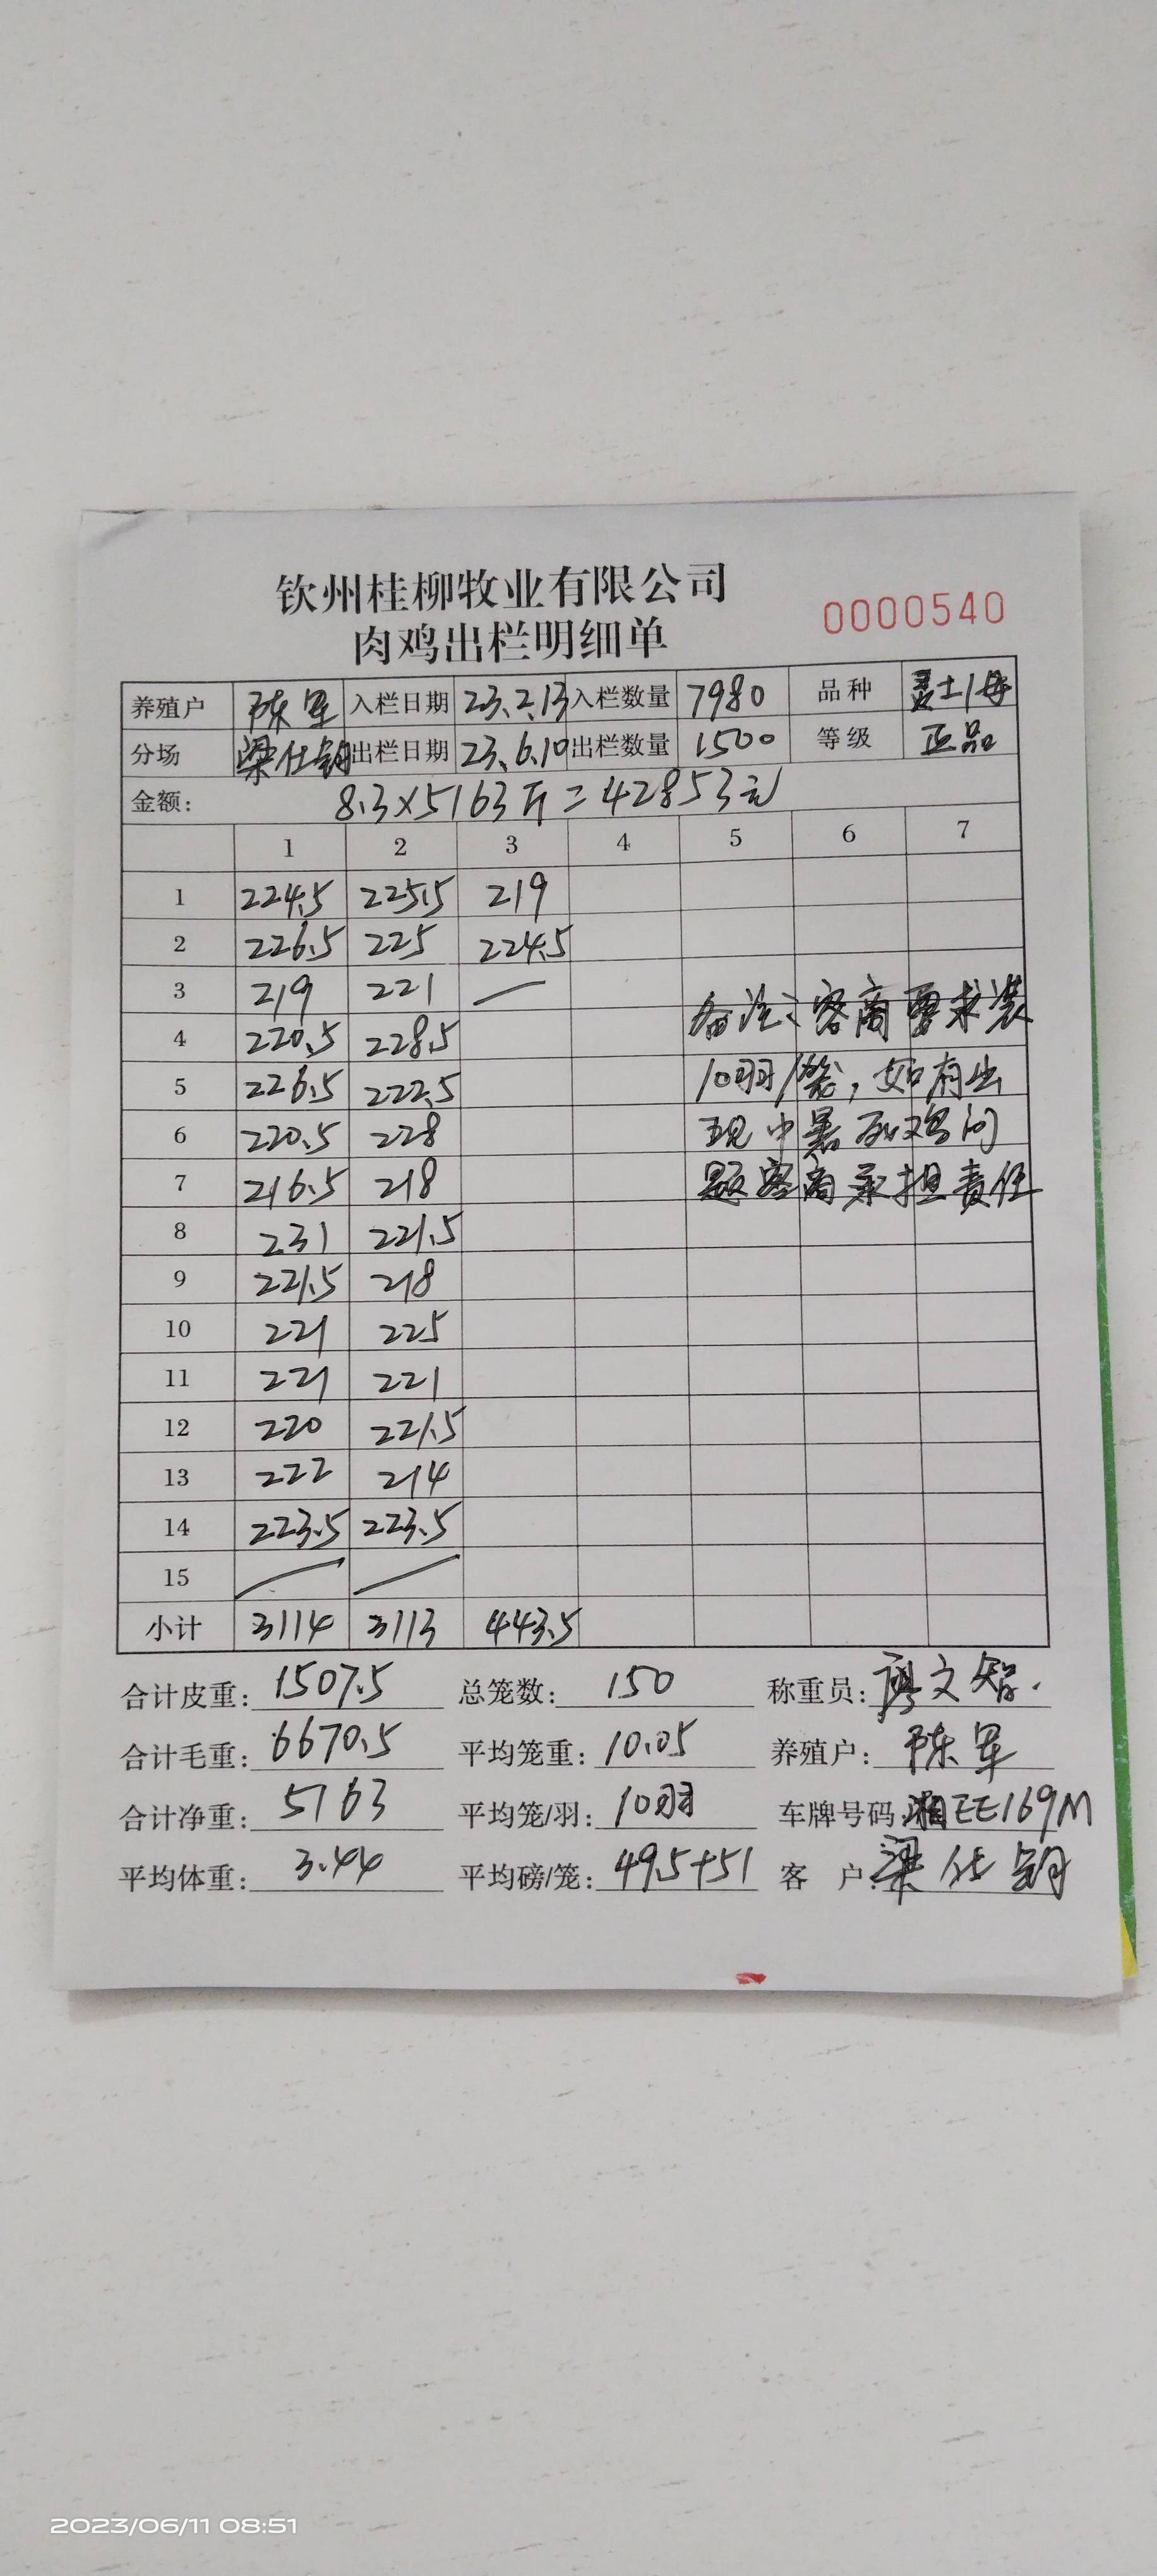 钦州桂柳牧业有限公司
肉鸡出栏明细单
0000540
养殖户 陈军 入栏日期 23.2.13 入栏数量 7980 品种 土1母
分场 梁仕钥 出栏日期 23.6.10 出栏数量 1500 等级 正品
金额: 8.3×5163斤=42853元
1 2 3 4 5 6 7
1 224.5 225.5 219
2 226.5 225 224.5
3 219 221 —
4 220.5 228.5
5 226.5 222.5
6 220.5 228
7 216.5 218
8 231 221.5
9 221.5 218
10 221 225
11 221 221
12 220 221.5
13 222 214
14 223.5 223.5
15
小计 3114 3113 443.5
备注:客商要求装
10羽/笼,如有出
现中暑死鸡问
题客商承担责任
合计皮重: 1507.5 总笼数: 150 称重员: 廖文智.
合计毛重: 6670.5 平均笼重: 10.05 养殖户: 陈军
合计净重: 5163 平均笼/羽: 10羽 车牌号码: 湘EE169M
平均体重: 3.44 平均磅/笼: 49.5+51 客 户: 梁仕钥
2023/06/11 08:51